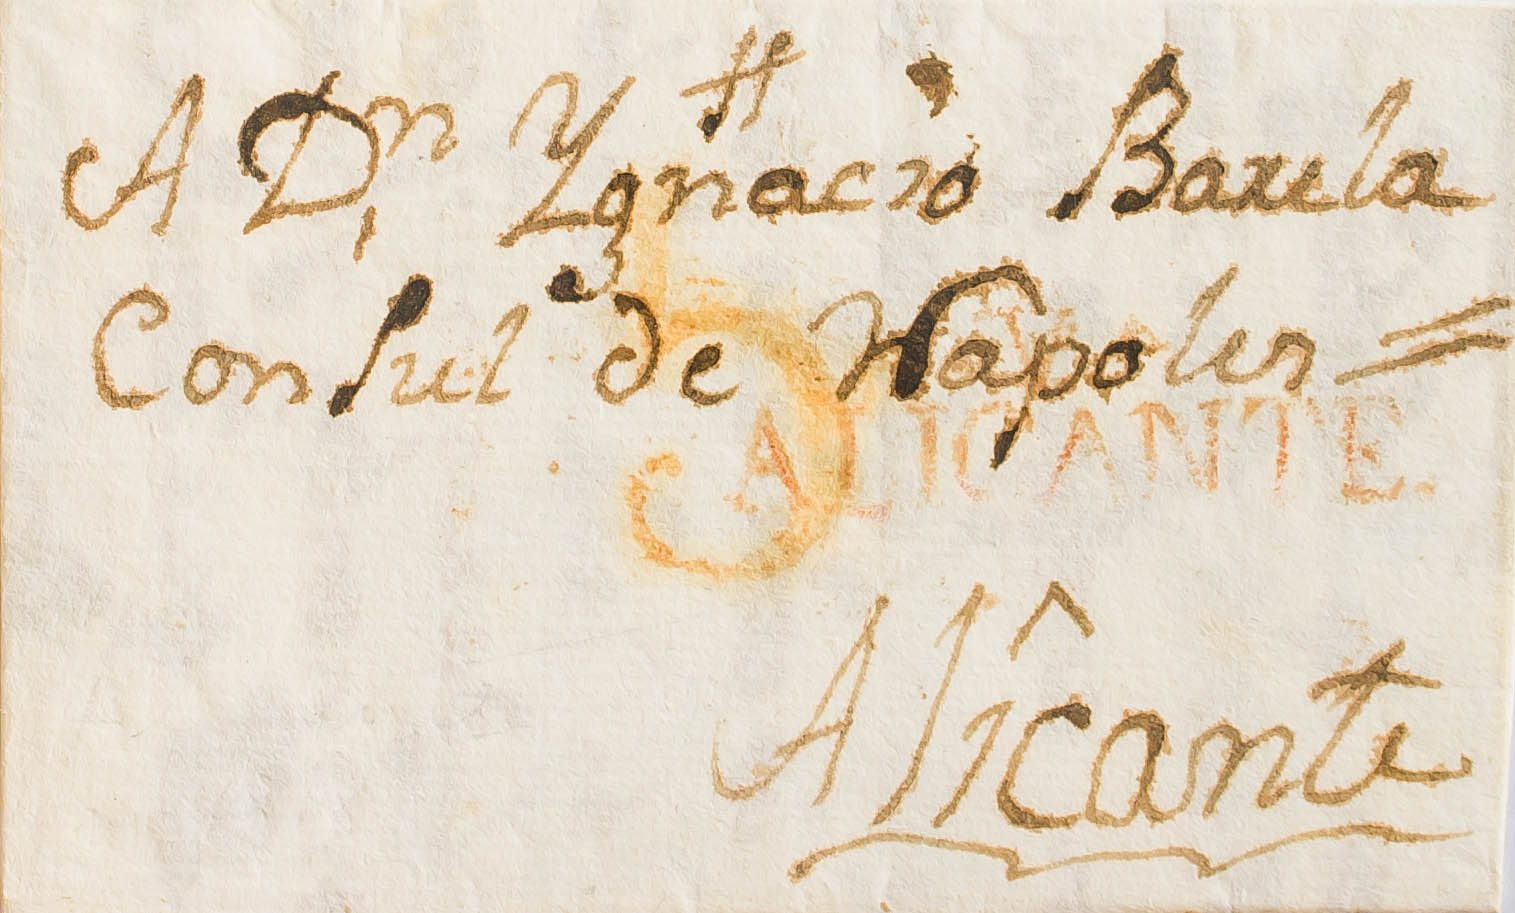 #
A Dn Ygnacio Barela
Consul de Napoles =
5
ALICANTE.
Alicante